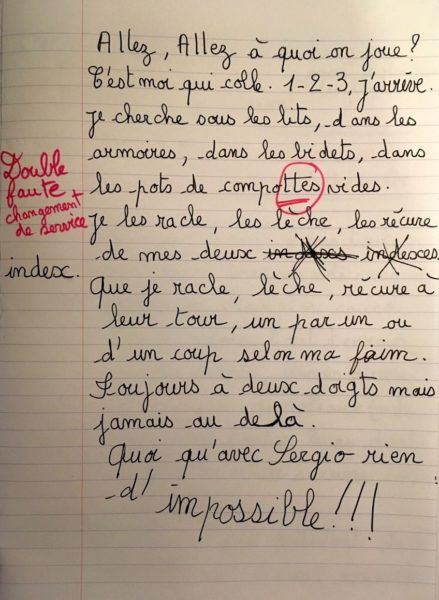 Allez, Allez à quoi on joue?
C'est moi qui colle. 1-2-3, j'arrêve.
Je cherche sous les lits, dans les
armoires, dans les bidets, dans
les pots de compottes vides.
Double
faute +
changement
de service
Je les racle, les lèche, les récure
de mes deux indexes indexces
index.
Que je racle, lèche, récure à
leur tour, un par un ou
d'un coup selon ma faim.
Toujours à deux doigts mais
jamais au delà.
Quoi qu'avec Sergio rien
d'impossible!!!